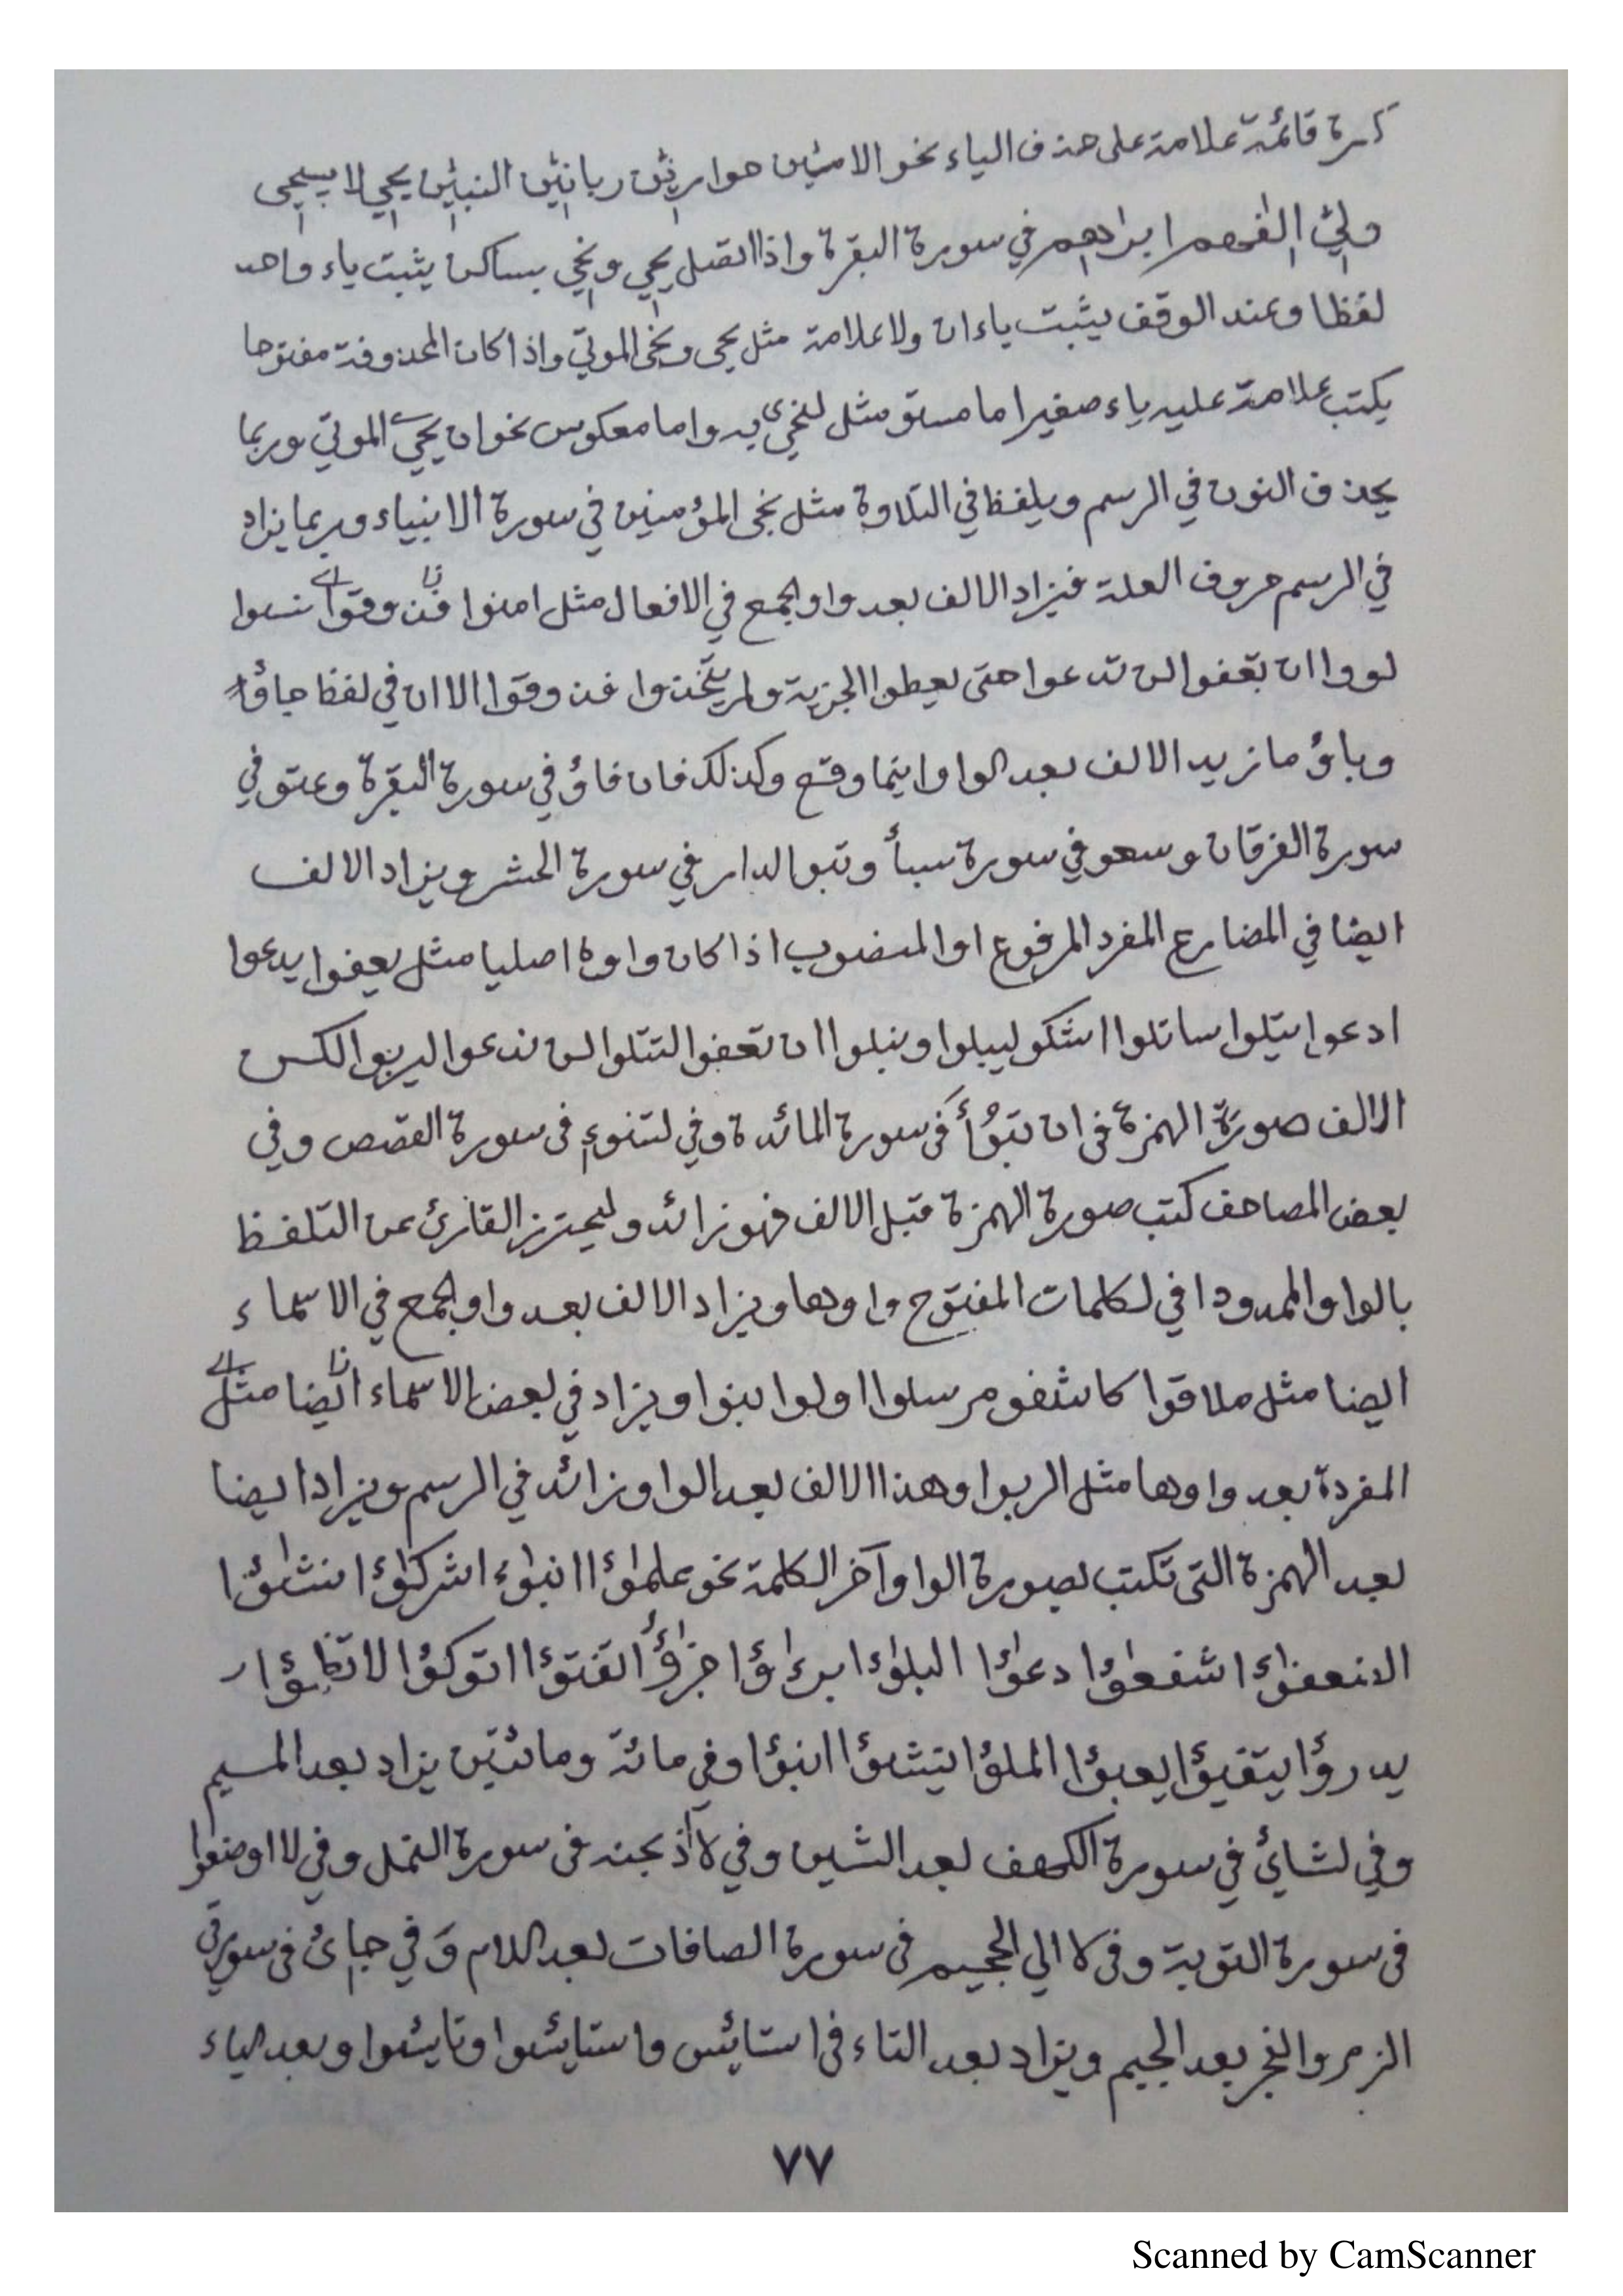 كسرة قائمة علامة على حذف الياء نحو الامين حوارين ربانين النبين يحي لا يستحي
ولي الفهم ابرهم في سورة البقرة واذا اتصل يحي ونحي بساكن يثبت ياء واحد
لفظا وعند الوقف يثبت ياءان ولا علامة مثل يحى ونحى الموتي واذا كان المحذوفة مفتوحا
يكتب علامة عليه ياء صغيرا ما مستو مثل لنحي به واما معكوس نحو ان يحي الموتي وربما
يحذف النون في الرسم ويلفظ في التلاوة مثل نجى المؤمنين في سورة الانبياء وربما يزاد
في الرسم حروف العلة فيزاد الالف بعد واو الجمع في الافعال مثل امنوا فذوقوا نسوا
لووا ان تعفوا لن تدعوا حتى يعطوا الجزية ولم يتخذوا فذوقوا الا ان في لفظ جاؤ
وباؤ ما زيد الالف بعد الواو اينما وقع وكذلك فان فاؤ في سورة البقرة وعتو في
سورة الفرقان وسعو في سورة سبأ وتبو الدار في سورة الحشر ويزاد الالف
ايضا في المضارع المفرد المرفوع او المنصوب اذا كان واوه اصليا مثل يعفوا يدعوا
ادعوا يتلوا ساتلوا اشكو ليبلوا ونبلوا ان تعفوا لتتلوا لن ندعوا ليربوا لكن
الالف صورة الهمزة في ان تبؤأ في سورة المائدة وفي لتنوء في سورة القصص وفي
بعض المصاحف كتب صورة الهمزة قبل الالف فهو زائد وليحترز القارئ عن التلفظ
بالواو الممدودا في لكلمات المفتوح واوها ويزاد الالف بعد واو الجمع في الاسماء
ايضا مثل ملاقوا كاشفو مرسلوا اولوا بنوا ويزاد في بعض الاسماء ايضا مثل
المفردة بعد واوها مثل الربوا وهذا الالف بعد الواو زائد في الرسم ويزاد ايضا
بعد الهمزة التي تكتب بصورة الواو آخر الكلمة نحو علمٰؤا انبٰؤا شركٰؤا نشٰؤا
الضعفٰؤا شفعٰؤا دعٰؤا البلٰؤا برءٰؤا جزٰؤا تفتؤا اتوكؤا لا تظمؤا
يدرؤا يتفيؤا يعبؤا الملؤا ينشؤا نبؤا وفي مائة ومائتين يزاد بعد الميم
وفي لشائ في سورة الكهف بعد الشين وفي لاأذبحنه في سورة النمل وفي لا اوضعوا
في سورة التوبة وفي لا الي الجحيم في سورة الصافات بعد اللام وفي جائ في سورتي
الزمر والفجر بعد الجيم ويزاد بعد التاء في استائس واستائسوا وتائسوا وبعد الياء
٧٧
Scanned by CamScanner